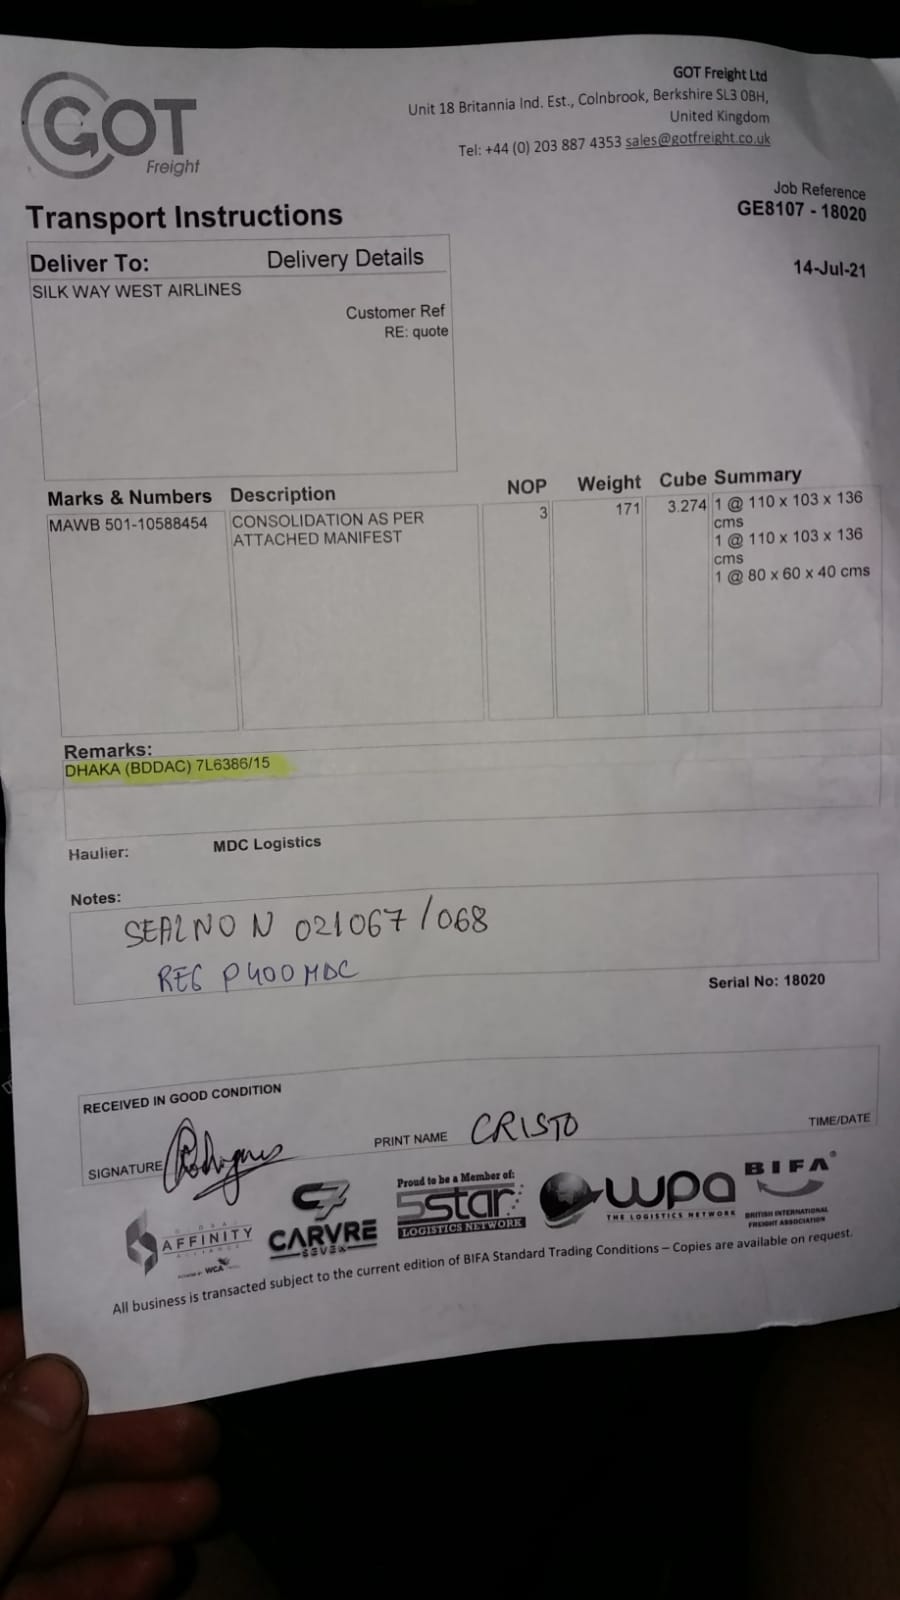 GOT
Freight
GOT Freight Ltd
Unit 18 Britannia Ind. Est., Colnbrook, Berkshire SL3 0BH,
United Kingdom
Tel: +44 (0) 203 887 4353 sales@gotfreight.co.uk
Job Reference
GE8107 - 18020
14-Jul-21
Transport Instructions
Deliver To: Delivery Details
SILK WAY WEST AIRLINES
Customer Ref
RE: quote
Marks & Numbers Description NOP Weight Cube Summary
MAWB 501-10588454 CONSOLIDATION AS PER 3 171 3.274 1 @ 110 x 103 x 136
cms
ATTACHED MANIFEST 1 @ 110 x 103 x 136
cms
1 @ 80 x 60 x 40 cms
Remarks:
DHAKA (BDDAC) 7L6386/15
Haulier: MDC Logistics
Notes:
SEALNO N 021067/068
REG P400MDC
Serial No: 18020
RECEIVED IN GOOD CONDITION
SIGNATURE PRINT NAME CRISTO TIME/DATE
AFFINITY
WCA
C7
CARVRE
SEVEN
Proud to be a Member of:
5star
LOGISTICS NETWORK
wpa
THE LOGISTICS NETWORK
BIFA
BRITISH INTERNATIONAL
FREIGHT ASSOCIATION
All business is transacted subject to the current edition of BIFA Standard Trading Conditions – Copies are available on request.